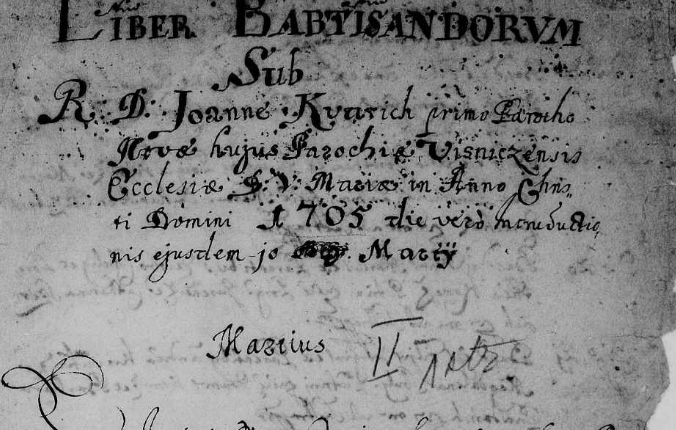 LIBER BABTISANDORVM
Sub
R. D: Joanne Kvarich primo Parocho
Novæ hujus Parochiæ Visniczensis
Ecclesiæ S. V. Mariæ in Anno Chris,
ti Domini 1705 die verò introductio,
nis ejusdem 30 Martÿ
Martius II